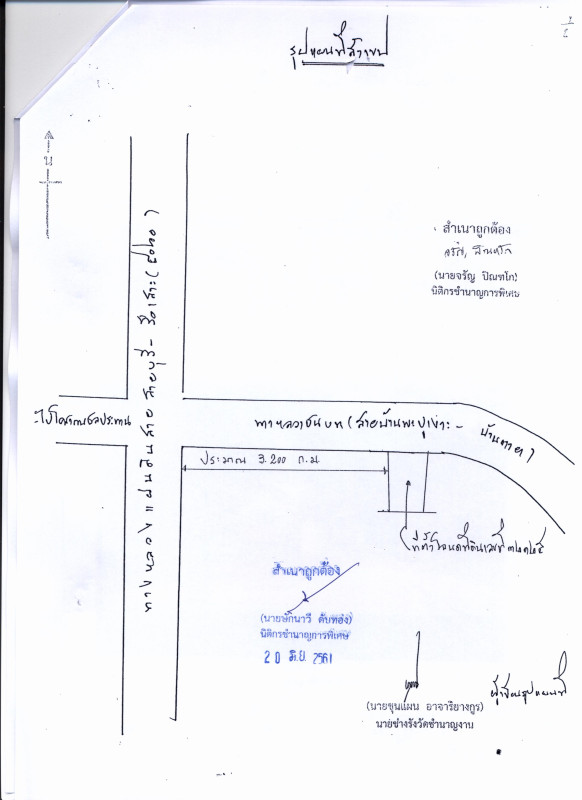 รูปแผนที่สังเขป
น
สำเนาถูกต้อง
(นายจรัญ ปิณฑโก)
นิติกรชำนาญการพิเศษ
ทางหลวงแผ่นดินสายสายบุรี - รือเสาะ (
ไปโครงการชลประทาน
ทางหลวงชนบท (สายบ้านพะปูเงาะ - บ้านตายา)
ประมาณ 3.200 ก.ม.
ที่ตั้งโฉนดที่ดินเลขที่
สำเนาถูกต้อง
(นายษักนาวี ดับทอง)
นิติกรชำนาญการพิเศษ
20 มิ.ย. 2561
ผู้เขียนรูปแผนที่
(นายขุนแผน อาจาริยางกูร)
นายช่างรังวัดชำนาญงาน